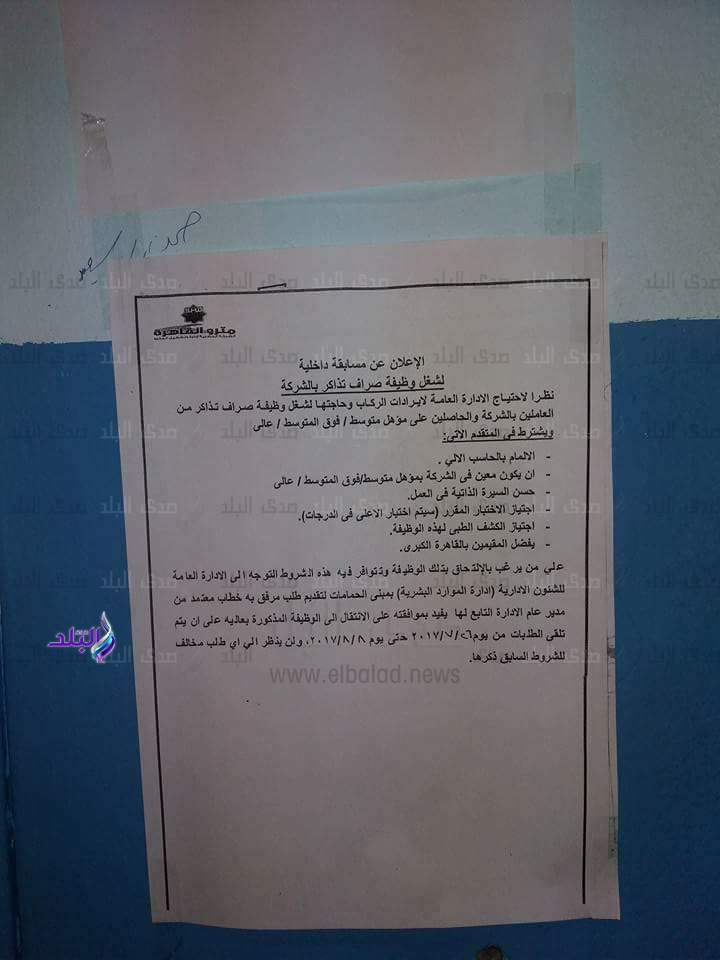 مترو القاهرة
الإعلان عن مسابقة داخلية
لشغل وظيفة صراف تذاكر بالشركة
نظرا لاحتياج الادارة العامة لايرادات الركاب وحاجتها لشغل وظيفة صراف تذاكر من
العاملين بالشركة والحاصلين على مؤهل متوسط / فوق المتوسط / عالى
ويشترط فى المتقدم الاتى:
- الالمام بالحاسب الالي .
- ان يكون معين فى الشركة بمؤهل متوسط/فوق المتوسط / عالى
- حسن السيرة الذاتية فى العمل.
- اجتياز الاختبار المقرر (سيتم اختيار الاعلى فى الدرجات).
- اجتياز الكشف الطبى لهذه الوظيفة.
- يفضل المقيمين بالقاهرة الكبرى.
علي من يرغب بالإلتحاق بتلك الوظيفة وتتوافر فيه هذه الشروط التوجه الى الادارة العامة
للشئون الادارية (ادارة الموارد البشرية) بمبنى الحمامات لتقديم طلب مرفق به خطاب معتمد من
مدير عام الادارة التابع لها يفيد بموافقته على الانتقال الى الوظيفة المذكورة بعاليه على ان يتم
تلقى الطلبات من يوم ٢٠١٧/٧/٢٦ حتى يوم ٢٠١٧/٨/٨، ولن ينظر الي اي طلب مخالف
للشروط السابق ذكرها.
صدى البلد
www.elbalad.news